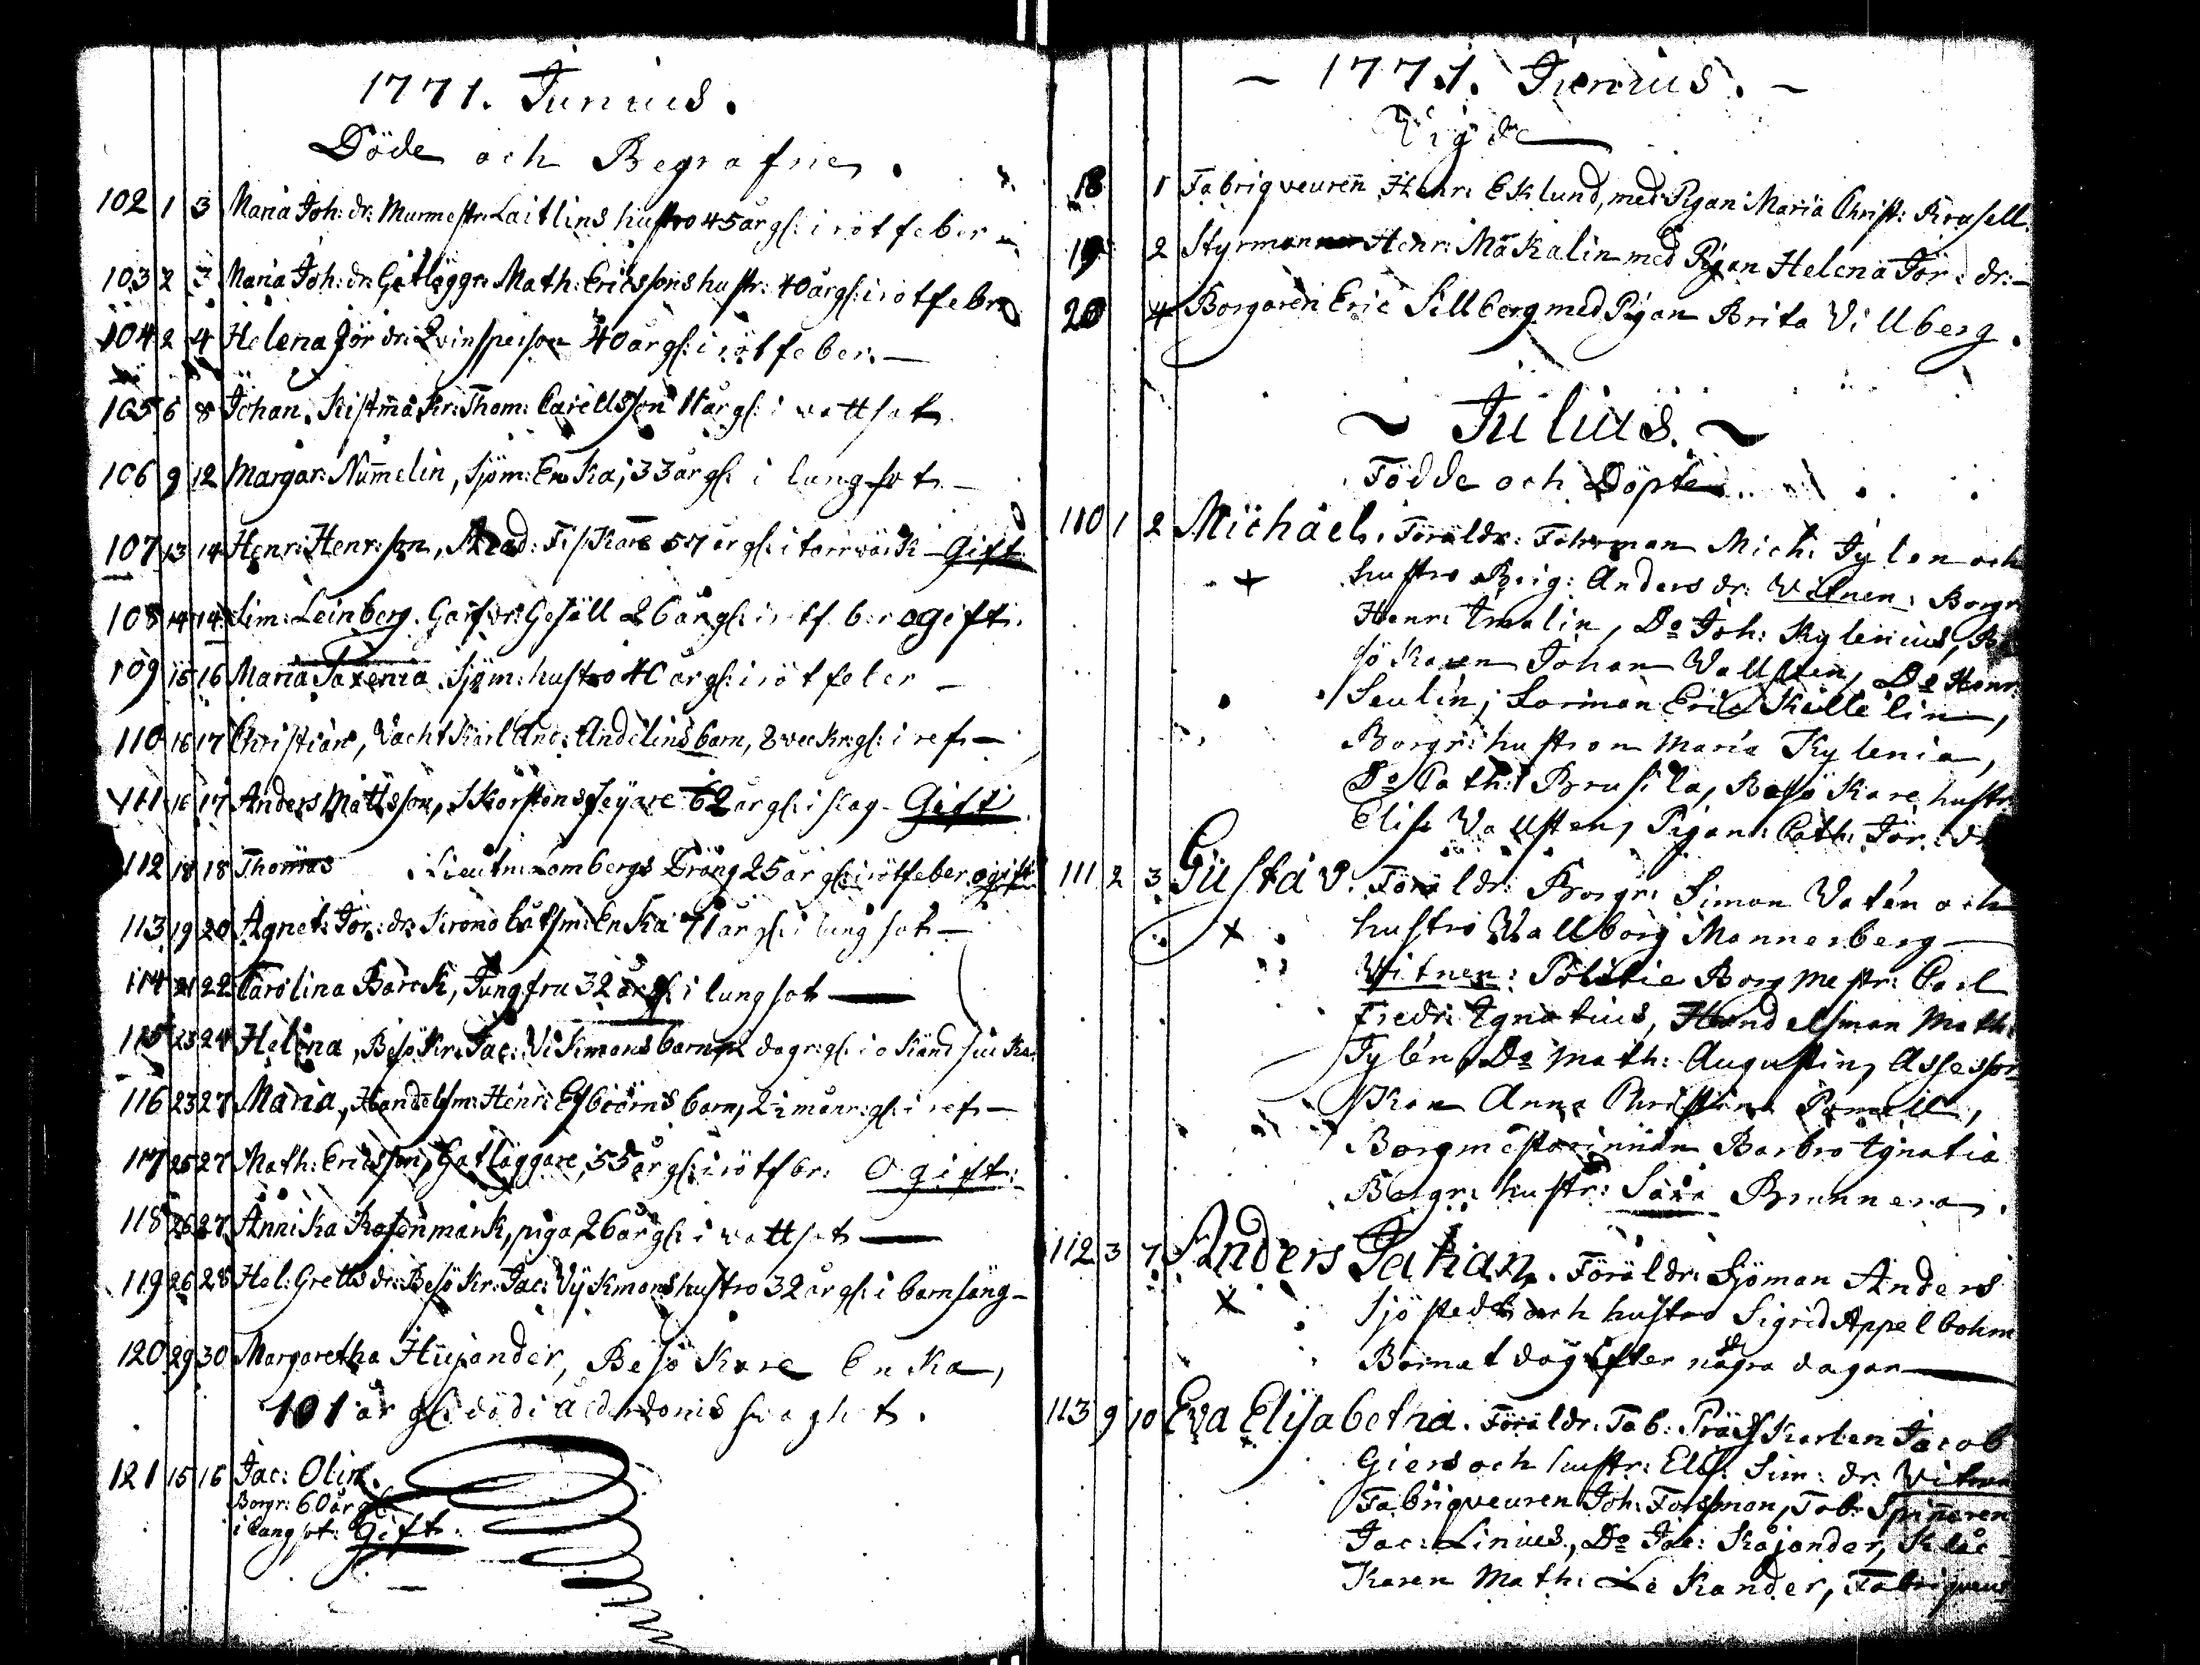 1771. Junius.
Döde och Begrafne.
102 1 3 Maria Joh: dr: Murmestr: Laitlins hustro 45 år gl: i rötfeber
103 2 3 Maria Joh: dr: Gatläggr: Math: Ericssons hustr: 40 år gl: i rötfebr
104 2 4 Helena Jör dr: Qvinsperson 40 år gl: i rötfeber. —
105 6 8 Johan, Kistmakr: Thom: Carellsson 11 år gl: i vattsot
106 9 12 Margar: Num̄elin, Sjöm: Enka, 33 år gl: i lungsot —
107 13 14 Henr: Henr:son, Acad: Fiskare 57 år gl: i torrvärk — Gift
108 14 14 Sim: Leinberg. Garfvr: Gesäll 26 år gl: i rötf. ber ogift.
109 15 16 Maria Paxenia Sjöm: hustro 40 år gl: i rötfeber —
110 16 17 Christian, Vachtkarl And: Andelins barn, 8 veckr: gl: i ref: —
111 16 17 Anders Mattsson, Skorstensfeÿare 62 år gl: i slag — Gift
112 18 18 Thomas Lieutn: Lombergs Dräng 25 år gl: i rötfeber ogift
113 19 20 Agnet: Jör: dr: Krono båtsm: Enka 71 år gl: i lungsot —
114 21 22 Carolina Barck, Jungfru 32 år gl: i lungsot —
115 23 24 Helena, Besökr: Jac: Vikmans barn dagr: gl: i okänd siuka
116 23 27 Maria, Handelsm: Henr: Esbiörns barn, 2½ månr: gl: i ref: —
117 25 27 Math: Ericsson, Gatläggare, 55 år gl: i rötfbr: Ogift:
118 26 27 Annika Rosenmark, piga, 26 år gl: i vattsot —
119 26 28 Hel: Grells dr: Besökr: Jac: Vÿkmans hustro 32 år gl: i barnsäng —
120 29 30 Margaretha Hiijander, Besökare Enka,
101 år gl: död i ålderdoms svaghet.
121 15 16 Jac: Olin.
Borgr: 60 år gl:
i lungsot: Gift.
— 1771. Junius. —
Vigde
18 1 Fabriqveuren̄ Henr: Eklund, med Pigan Maria Christ: Krusell.
19 2 Styrman Henr: Mäkalin med Pigan Helena Jör: dr: —
20 4 Borgaren Eric Sillberg med Pigan Brita Villberg.
~ Julius. ~
Födde och Döpte
110 1 2 Michael. Föräldr: Fohrman Mich: Tylen och
+ hustro Brig: Anders dr: Vitnen: Borgr
Henr: Imalin, Do Joh: Kylenius, Be
sökaren Johan Vallsten, Do Henr:
Seulin, Sorman Eric Killelin,
Borgr: hustron Maria Kylenia,
Do Cath: Brusila, Besökare hustr
Elis: Vallsten, Pigan: Cath: Jör: dr
111 2 3 Gustav. Föräldr: Borgr: Simon Vatén och
x hustro Vallborg Mannerberg —
Vitnen: Politie Borgmestr: Carl
Fredr: Ignatius, Handelsman Math:
Tylén, Do Math: Augustin, Assessor
skan Anna Christina Pomell,
Borgmestarinnan Barbro Ignatia
Borgr: hustr: Sara Brunnera.
112 3 7 Anders Johan. Föräldr: Sjöman Anders
x Sjöstedt och hustro Sigrid Appelbohm
Barnet dög efter några dagar —
113 9 10 Eva Elisabetha. Föräldr: Fab: Präskarlen Jacob
Giers och hustr: Elis: Sim: dr: Vitnen
Fabriqveuren Joh: Forsman, Fab: Spin̄aren
Jac: Linius, Do Jac: Kajander, Klåc
karen Math: Lekander, Fabriqveur